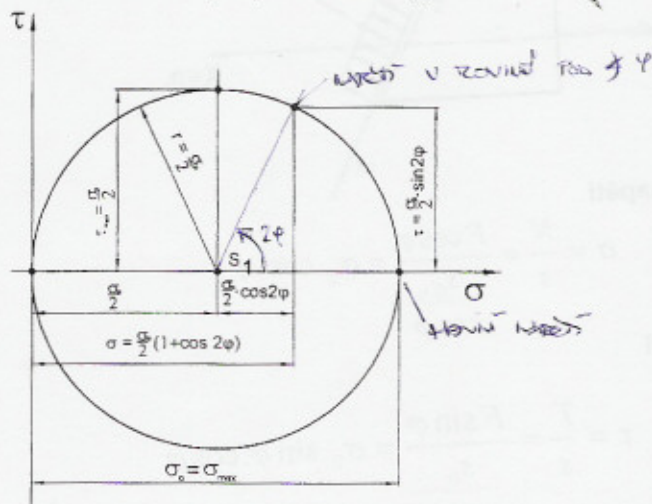 τ
NAPĚTÍ V ROVINĚ POD ∢ φ
r = σ₀/2
τmax = σ₀/2
τ = σ₀/2 · sin2φ
2φ
S₁
σ₀/2
σ₀/2 · cos2φ
σ
σ = σ₀/2 (1+cos 2φ)
HLAVNÍ NAPĚTÍ
σ₀ = σmax